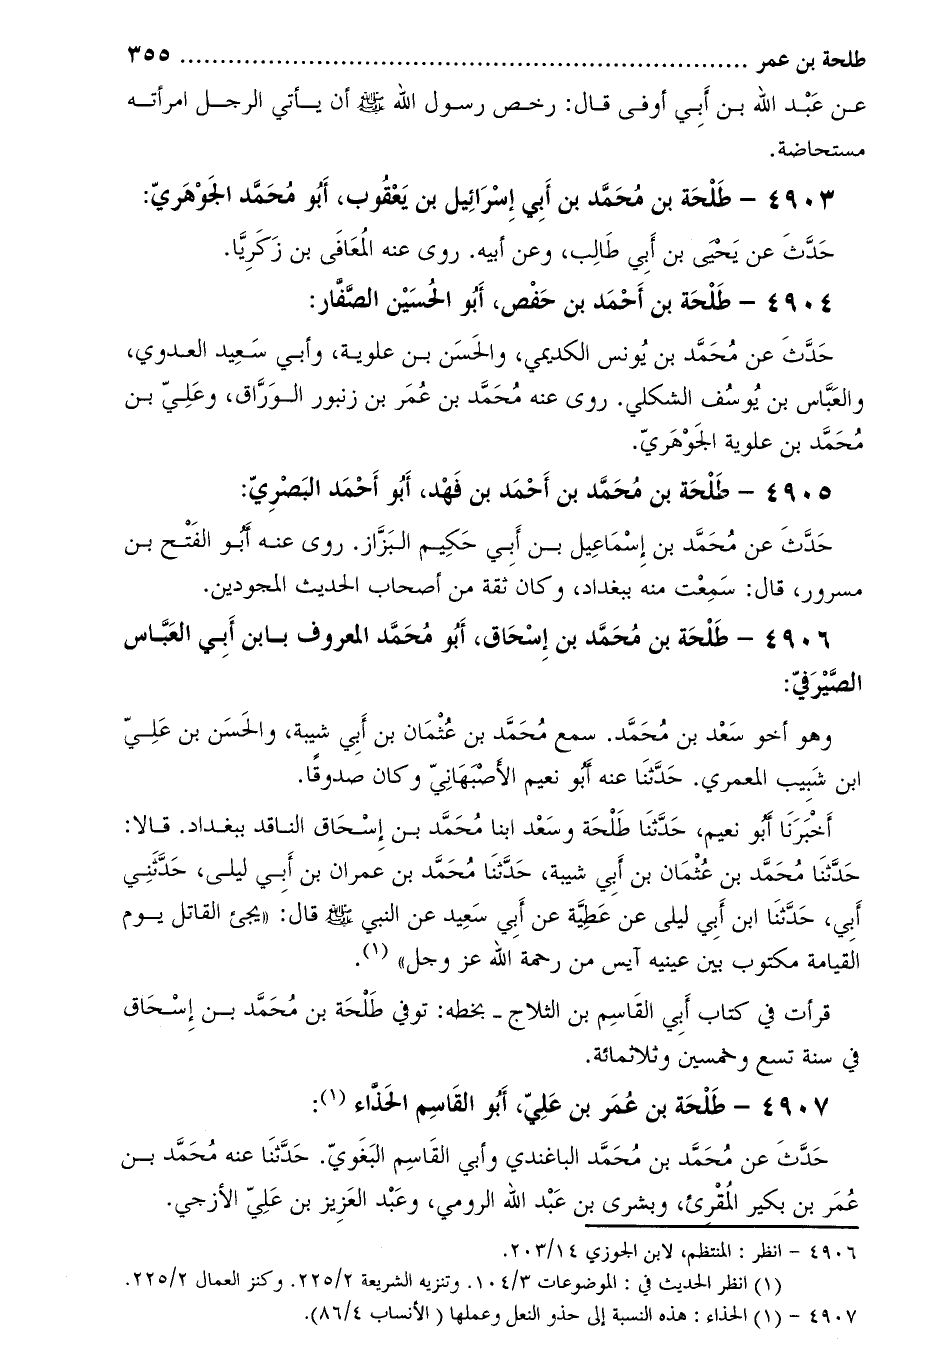 طلحة بن عمر ........................................................................ ٣٥٥
عـن عَبْـد الله بـن أَبِـي أوفـى قـال: رخـص رسـول الله ﷺ أن يـأتي الرجـل امرأتـه
مستحاضة.
٤٩٠٣ - طَلْحَة بن مُحَمَّد بن أَبِي إِسْرَائِيل بن يَعْقُوب، أَبُو مُحَمَّد الجَوْهَرِيّ:
حَدَّثَ عن يَحْيَى بن أَبِي طَالِب، وعن أبيه. روى عنه المُعَافَى بن زَكَرِيَّا.
٤٩٠٤ - طَلْحَة بن أَحْمَد بن حَفْص، أَبُو الحُسَيْن الصَّفَّار:
حَدَّثَ عن مُحَمَّد بن يُونس الكديمي، والحَسَن بن علوية، وأبي سَعِيد العدوي،
والعَبَّاس بن يُوسُف الشكلي. روى عنه مُحَمَّد بن عُمَر بن زنبور الـورَّاق، وعَلِيّ بـن
مُحَمَّد بن علوية الجَوْهَرِيّ.
٤٩٠٥ - طَلْحَة بن مُحَمَّد بن أَحْمَد بن فَهْد، أَبُو أَحْمَد البَصْرِيّ:
حَدَّثَ عن مُحَمَّد بن إِسْمَاعِيل بـن أبـي حَكِيـم الـبَزَّاز. روى عنـه أَبُـو الفَتْـح بـن
مسرور، قال: سَمِعْت منه ببغداد، وكان ثقة من أصحاب الحديث المجودين.
٤٩٠٦ - طَلْحَة بن مُحَمَّد بن إِسْحَاق، أَبُو مُحَمَّد المعروف بـابن أَبِي العَبَّـاس
الصَّيْرَفِيّ:
وهو أخو سَعْد بن مُحَمَّد. سمع مُحَمَّد بن عُثْمَان بن أَبِي شيبة، والحَسَن بن عَلِـيّ
ابن شَبِيب المعمري. حَدَّثَنَا عنه أَبُو نعيم الأَصْبَهَانِيّ وكان صدوقًا.
أَخْبَرَنَا أَبُو نعيم، حَدَّثَنَا طَلْحَة وسَعْد ابنا مُحَمَّد بـن إِسْحَاق الناقد ببغداد. قـالا:
حَدَّثَنَا مُحَمَّد بن عُثْمَان بن أَبِي شيبة، حَدَّثَنَا مُحَمَّد بن عمران بن أَبِـي ليلـى، حَدَّثَنِـي
أبي، حَدَّثَنَا ابن أَبِي ليلى عن عَطِيَّة عن أَبِي سَعِيد عن النبي ﷺ قال: «يجئ القاتل يـوم
القيامة مكتوب بين عينيه آيس من رحمة الله عز وجل» (١).
قرأت في كتاب أَبِي القَاسِم بن الثلاج ـ بخطه: توفي طَلْحَة بن مُحَمَّد بـن إِسْـحَاق
في سنة تسع وخمسين وثلاثمائة.
٤٩٠٧ - طَلْحَة بن عُمَر بن عَلِيّ، أَبُو القَاسِم الحَذَّاء (١):
حَدَّثَ عن مُحَمَّد بن مُحَمَّد الباغندي وأبي القَاسِم البَغَوِيّ. حَدَّثَنَا عنه مُحَمَّد بـن
عُمَر بن بكير المُقْرِئ، وبشرى بن عَبْد الله الرومي، وعَبْد العزيز بن عَلِيّ الأزجي.
٤٩٠٦ - انظر : المنتظم، لابن الجوزي ٢٠٣/١٤.
(١) انظر الحديث في : الموضوعات ١٠٤/٣. وتنزيه الشريعة ٢٢٥/٢. وكنز العمال ٢٢٥/٢.
٤٩٠٧ - (١) الحذاء : هذه النسبة إلى حذو النعل وعملها ( الأنساب ٨٦/٤).